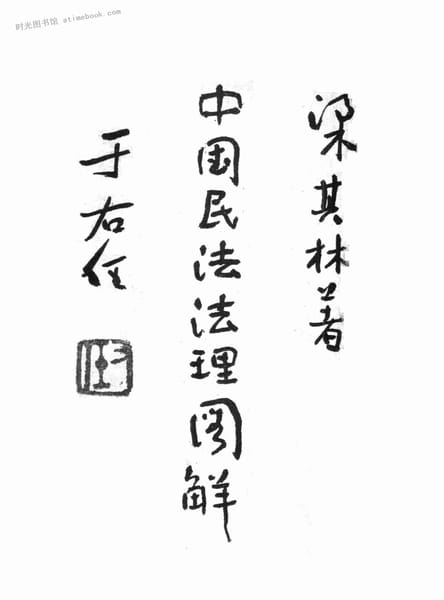 时光图书馆 atimebook.com
梁其林著
中国民法法理图解
于右任